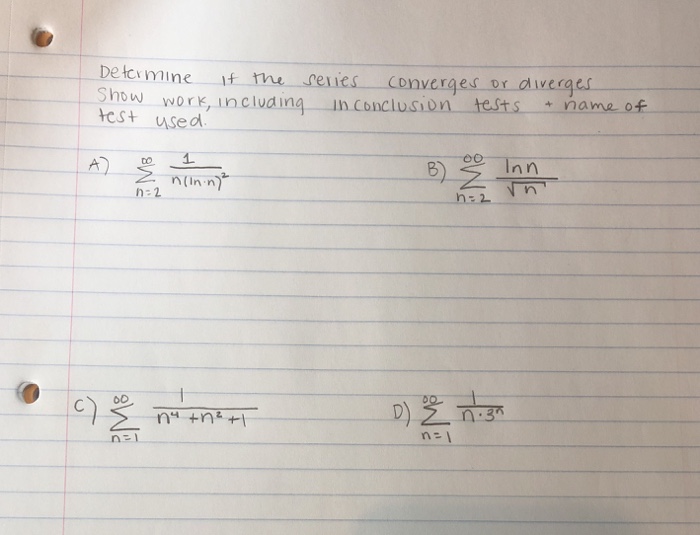 Determine if the series converges or diverges
Show work, including inconclusion tests + name of
test used.
A) ∞ Σ n=2 1/n(ln·n)²
B) ∞ Σ n=2 lnn/√n
C) ∞ Σ n=1 1/n⁴+n²+1
D) ∞ Σ n=1 1/n·3ⁿ